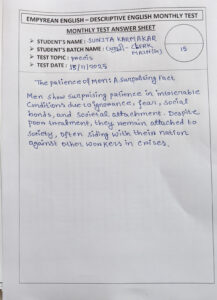 EMPYREAN ENGLISH – DESCRIPTIVE ENGLISH MONTHLY TEST
MONTHLY TEST ANSWER SHEET
➤ STUDENT'S NAME : SUNITA KARMAKAR
➤ STUDENT'S BATCH NAME : CLERK
MAINS)
➤ TEST TOPIC : precis
➤ TEST DATE : 18/11/2025
15
The patience of Men: A surprising Fact
Men show surprising patience in intolerable
conditions due to ignorance, fear, social
bonds, and societal attachment. Despite
poor treatment, they remain attached to
society, often siding with their nation
against other workers in crises.